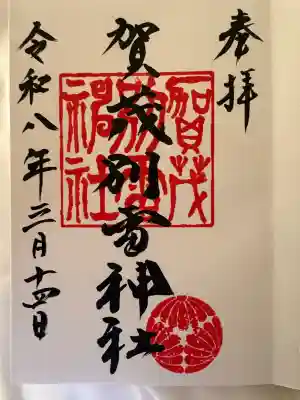 奉拝
賀茂別雷神社
令和八年三月十四日
賀茂